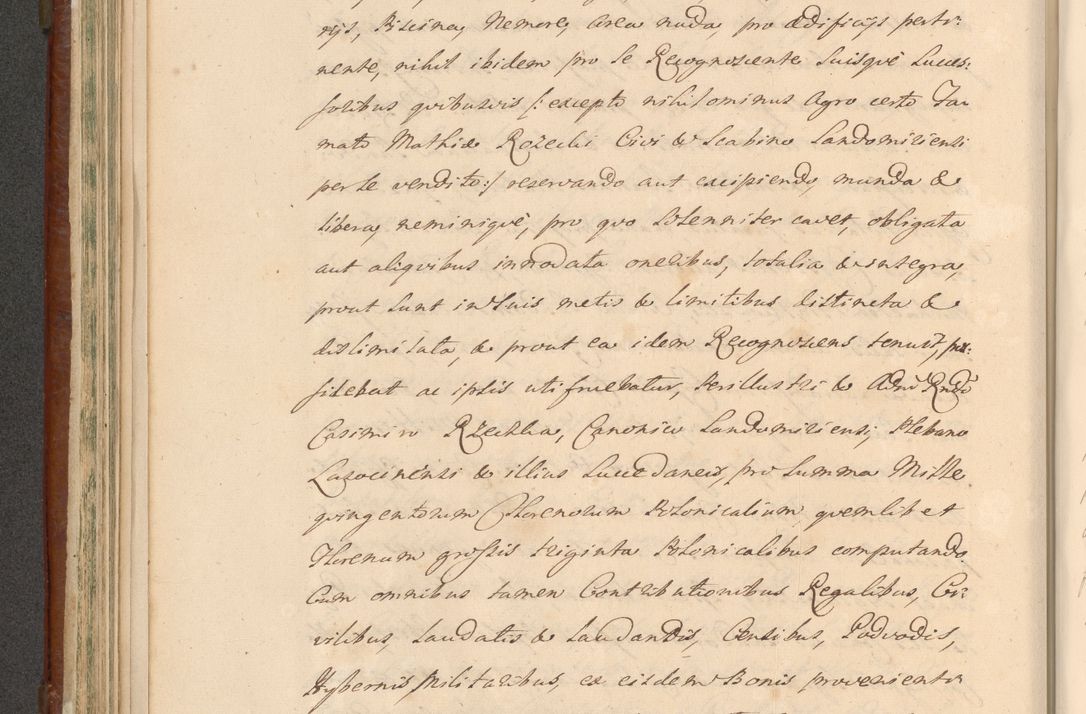 rijs, Piscina, Nemore, area nuda, pro ædificijs perti:
nente, nihil ibidem pro se Recognoscente Suisque Succes:
soribus quibusvis /: excepto nihilominus Agro certo Fa=
mato Mathiæ Rożecki Civi & Scabino Sandomiriensi
per se vendito :/ reservando aut excipiendo, munda &
libera, neminique, pro quo solenniter cavet, obligata
aut aliquibus innodata oneribus, totalia & integra,
prout sunt in suis metis & limitibus distincta &
dislimitata, & prout ea idem Recognoscens tenuit, pos:
sidebat ac ipsis uti fruebatur, Perillustri & Adm Rndo
Casimiro Rżechka, Canonico Sandomiriensi, Plebano
Lagocinensi & illius Succedaneis, pro Summa Mille
quingentorum Florenorum Polonicalium, quemlibet
Florenum grossis triginta Polonicalibus computando.
Cum omnibus tamen Contributionibus Regalibus, Ci:
vilibus, Laudatis & Laudandis, Censibus, Podvodis,
Hybernis, Militaribus, ex eisdem Bonis provenienti=